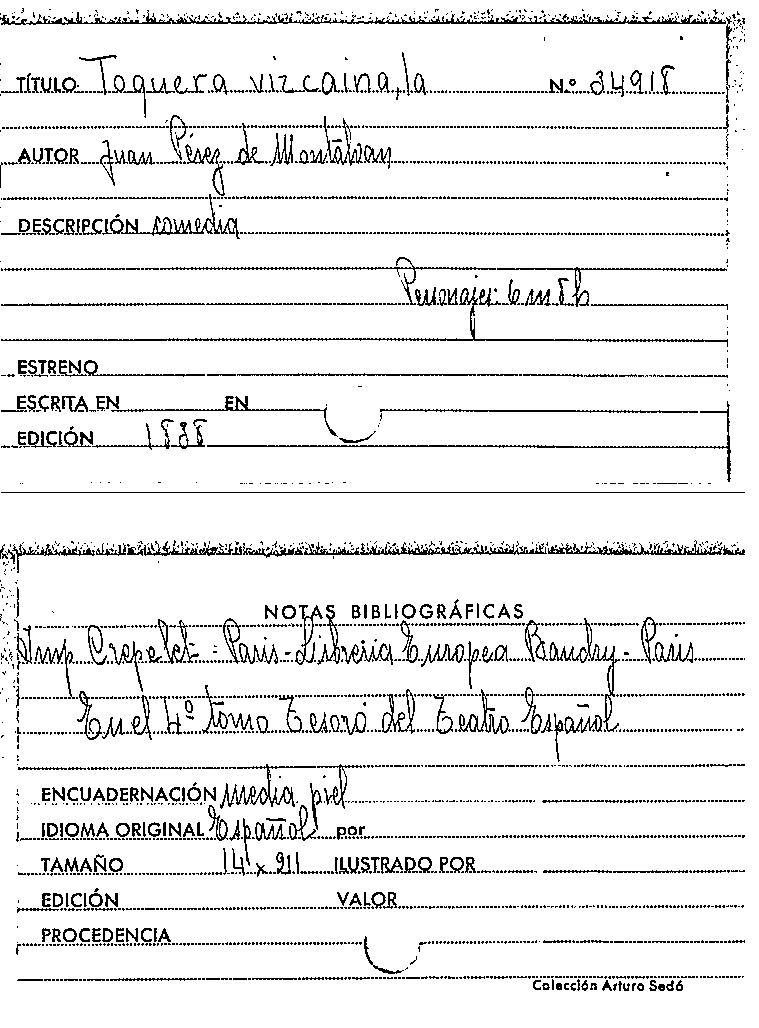 TÍTULO Toquera vizcaina, la Nº 34918
AUTOR Juan Pérez de Montalvan
DESCRIPCIÓN comedia
Personajes: 6 m 8 h
ESTRENO
ESCRITA EN EN
EDICIÓN 1838
NOTAS BIBLIOGRÁFICAS
Imp Crepelet = Paris - Libreria Europea Baudry - Paris
En el 4º tomo Tesoro del Teatro Español
ENCUADERNACIÓN media piel
IDIOMA ORIGINAL Español por
TAMAÑO 14 x 211 ILUSTRADO POR
EDICIÓN VALOR
PROCEDENCIA
Colección Arturo Sedó